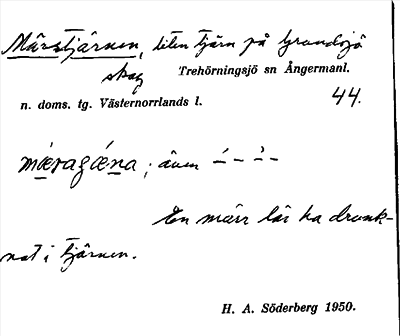 Märrstjärnen, liten tjärn på Grundsjö
skog Trehörningsjö sn Ångermanl.
n. doms. tg. Västernorrlands l. 44.
mæragæna; även
En märr lär ha drunk-
nat i tjärnen.
H. A. Söderberg 1950.